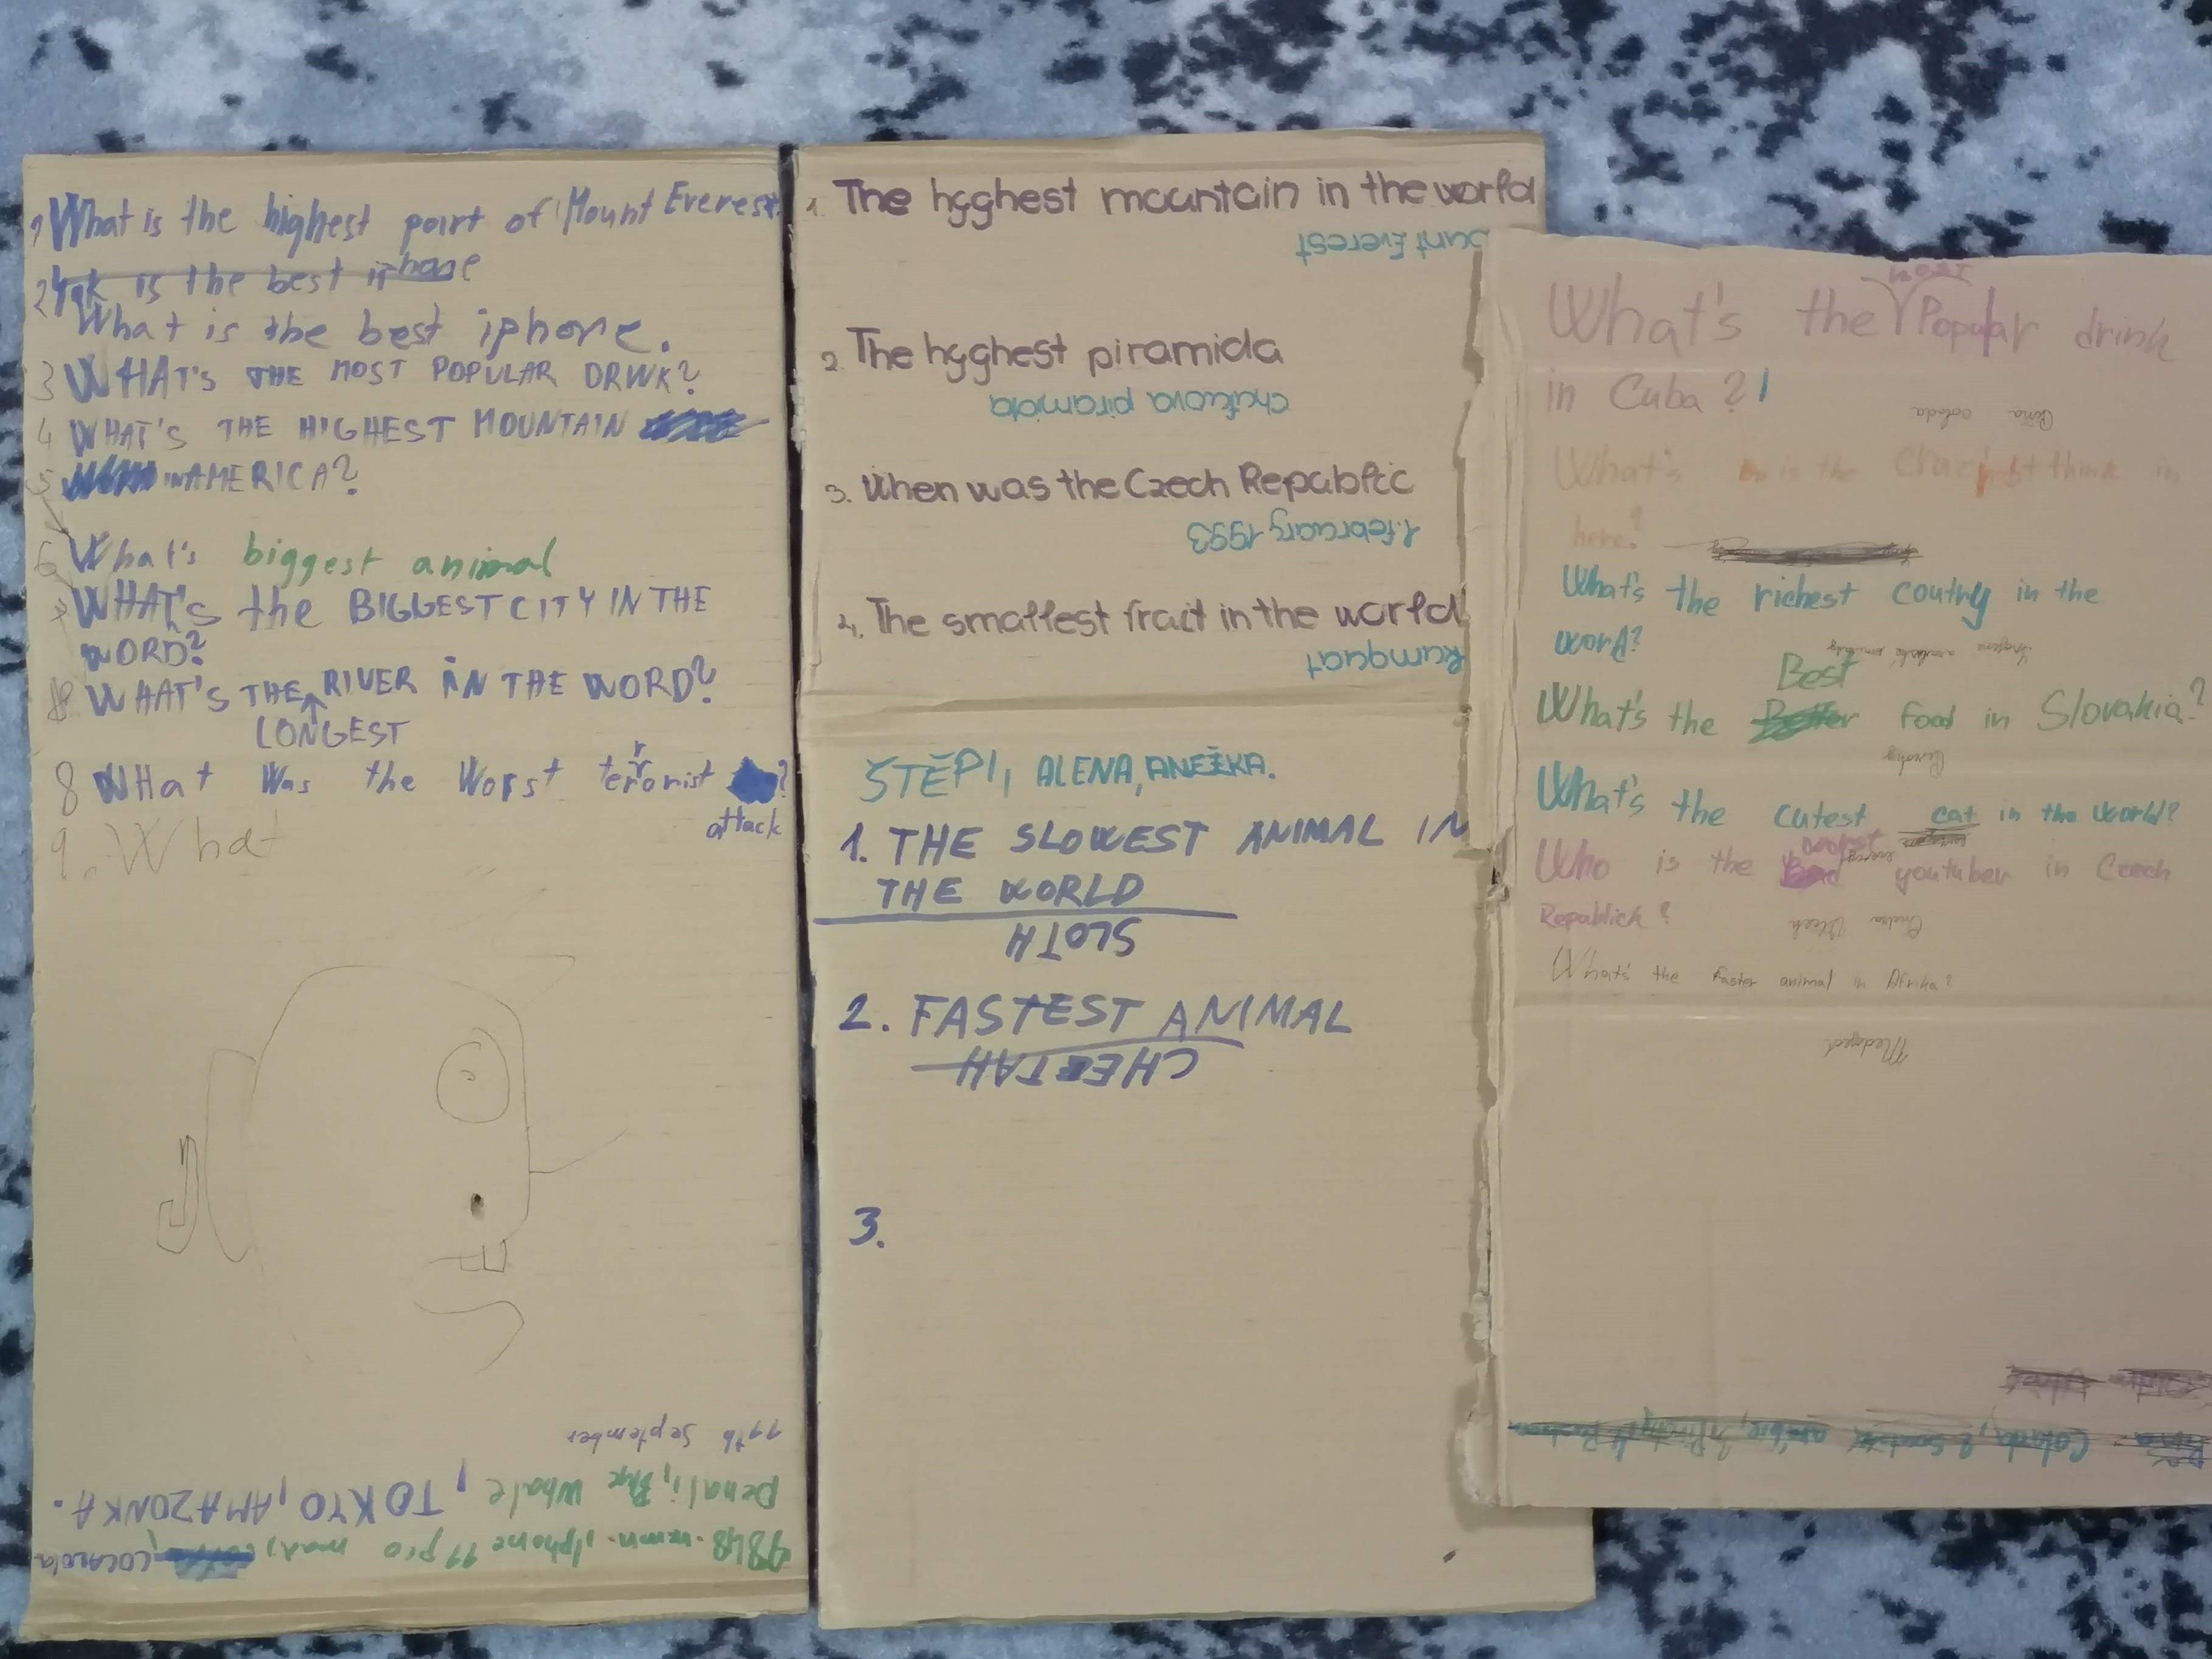 1 What is the highest point of Mount Everest
2 is the best iphone
What is the best iphone.
3 WHAT'S THE MOST POPULAR DRINK?
4 WHAT'S THE HIGHEST MOUNTAIN
5 IN AMERICA?
6 What's biggest animal
7 WHAT'S the BIGGEST CITY IN THE
WORD?
8 WHAT'S THE LONGEST RIVER IN THE WORD?
8 WHat was the Worst terrorist attack?
9. What
11th September
penali, Blue whale, TOKYO, AMAZONKA.
iphone 11 pro max, COCACOLA
1. The hyghest mountain in the world
ount Everest
2. The hyghest piramida
chufuova piramida
3. When was the Czech Republic
1. february 1993
4. The smallest fruit in the world
kumquat
ŠTĚPI, ALENA, ANEŽKA.
1. THE SLOWEST ANIMAL IN
THE WORLD
SLOTH
2. FASTEST ANIMAL
CHEETAH
3.
What's the most Popular drink
in Cuba?
Pina colada
What's is the craziest think in
here?
What's the richest coutry in the
word?
What's the Best food in Slovakia?
What's the cutest cat in the world?
Who is the worst youtuber in Czech
Republick?
Ondra Vlček
What's the faster animal in Afrika?